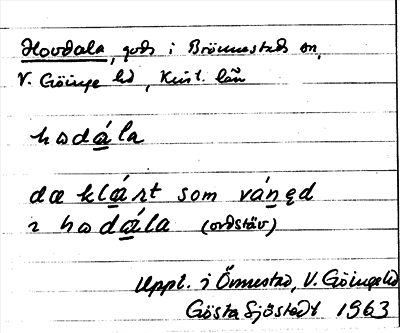 Hovdala, gods i Brönnestads sn,
V. Göinge hd, Krist. län
hɷdά̱la
dæ klά̱rt som vάn̲ęd
ɪ hɷdά̱la (ordstäv)
Uppt. i Önnestad, V. Göinge hd
Gösta Sjöstedt 1963